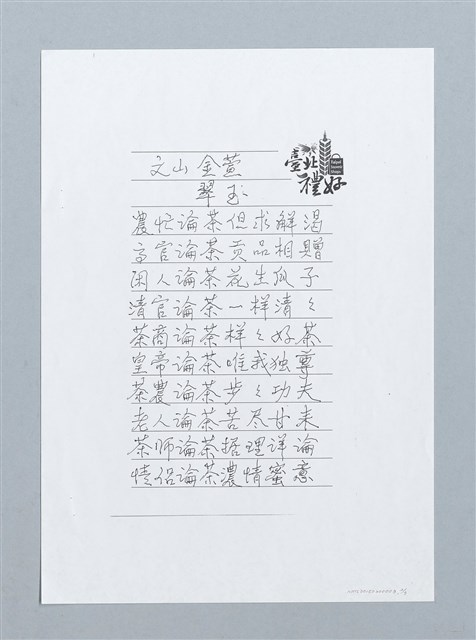 臺北
禮好
文山 金萱
翠玉
農忙論茶但求解渴
高官論茶贡品相贈
闲人論茶花生瓜子
清官論茶一样清々
茶商論茶样々好茶
皇帝論茶唯我独尊
茶農論茶步々功夫
老人論茶苦尽甘来
茶师論茶据理详論
情侣論茶濃情蜜意